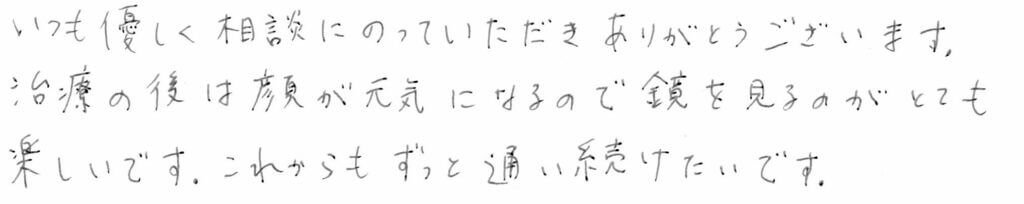 いつも優しく相談にのっていただきありがとうございます。
治療の後は顔が元気になるので鏡を見るのがとても
楽しいです。これからもずっと通い続けたいです。